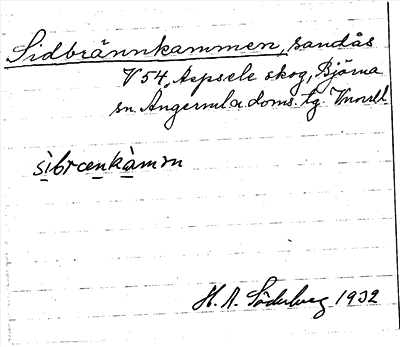 Sidbrännkammen, sandås
V 54, Aspsele skog, Björna
sn. Ångermla. doms. lg. Vnorrl
sìbrœnkàmm
H. A. Söderberg 1932